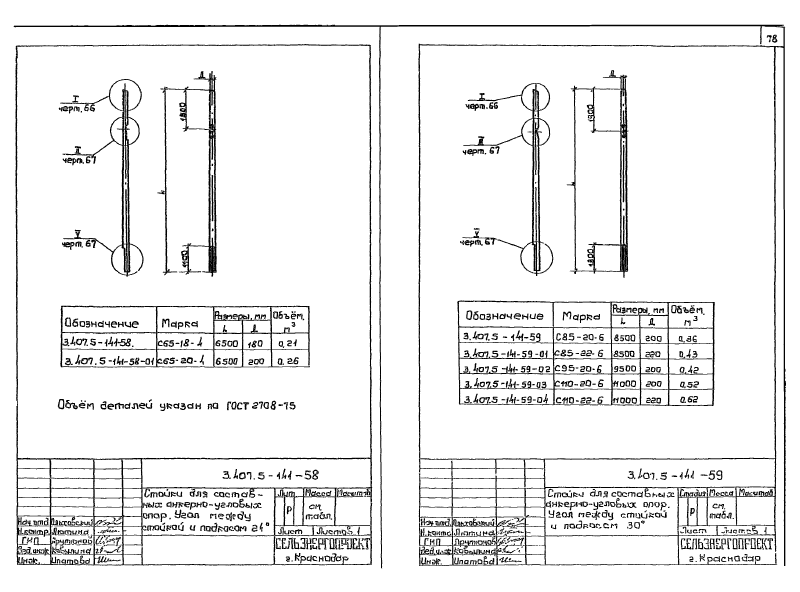 78
I
черт. 66
II
черт. 67
V
черт. 67
Д
1800
L
1100
Обозначение Марка Размеры, мм Объём, м³
L Д
3.407.5-141-58. С65-18-4 6500 180 0,21
3.407.5-141-58-01 С65-20-4 6500 200 0,26
Объём деталей указан по ГОСТ 2708-75
3.407.5-141-58
Стойки для составных анкерно-угловых опор. Угол между стойкой и подкосом 24°
Лит. Масса Масштаб
Р см. табл.
Лист Листов 1
СЕЛЬЭНЕРГОПРОЕКТ
г. Краснодар
Нач. отд.
Н.контр.
ГИП
Вед.инж.
Инж. Ипатова
I
черт. 66
III
черт. 67
V
черт. 67
Д
1900
L
1800
Обозначение Марка Размеры, мм Объём, м³
L Д
3.407.5-141-59 С85-20-6 8500 200 0,36
3.407.5-141-59-01 С85-22-6 8500 220 0,43
3.407.5-141-59-02 С95-20-6 9500 200 0,42
3.407.5-141-59-03 С110-20-6 11000 200 0,52
3.407.5-141-59-04 С110-22-6 11000 220 0,62
3.407.5-141-59
Стойки для составных анкерно-угловых опор. Угол между стойкой и подкосом 30°
Стадия Масса Масштаб
Р см. табл.
Лист Листов 1
СЕЛЬЭНЕРГОПРОЕКТ
г. Краснодар
Нач. отд.
Н.контр.
ГИП
Вед.инж.
Инж. Ипатова